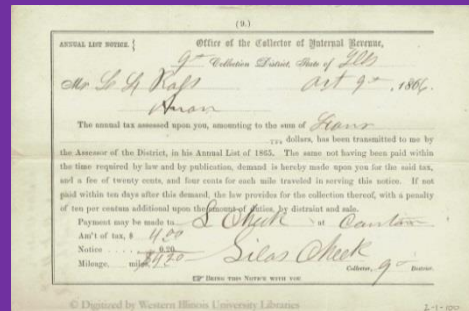 (9.)
ANNUAL LIST NOTICE. { Office of the Collector of Internal Revenue,
9th Collection District, State of Ills
Mr. Oct 9th, 1866.
The annual tax assessed upon you, amounting to the sum of Four
dollars, has been transmitted to me by
the Assessor of the District, in his Annual List of 1865. The same not having been paid within
the time required by law and by publication, demand is hereby made upon you for the said tax,
and a fee of twenty cents, and four cents for each mile traveled in serving this notice. If not
paid within ten days after this demand, the law provides for the collection thereof, with a penalty
of ten per centum additional upon the amount of duties, by distraint and sale.
Payment may be made to S Cheek at Canton
Am't of tax, $ 4.00
Notice ...... 0.20
Mileage. miles $4.20 Silas Cheek
Collector, 9th District.
☞ BRING THIS NOTICE WITH YOU
© Digitized by Western Illinois University Libraries